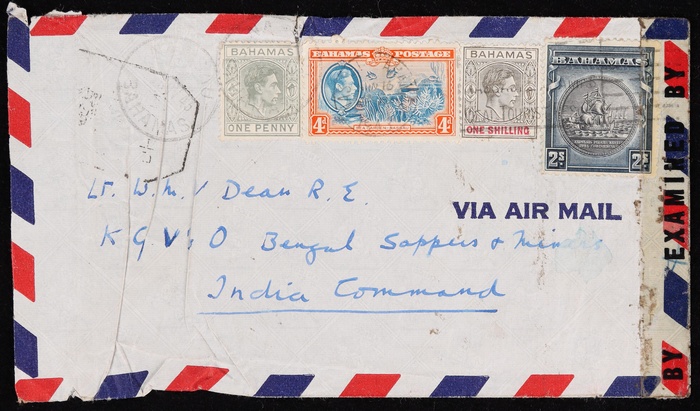 BAHAMAS
ONE PENNY
BAHAMAS POSTAGE
4d 4d
BAHAMAS
ONE SHILLING
BAHAMAS
2/s. 2/s.
BAHAMAS
Lt. W. M. Dean R. E.
VIA AIR MAIL
K G V's O Bengal Sappers & Miners
India Command
BY EXAMINED BY